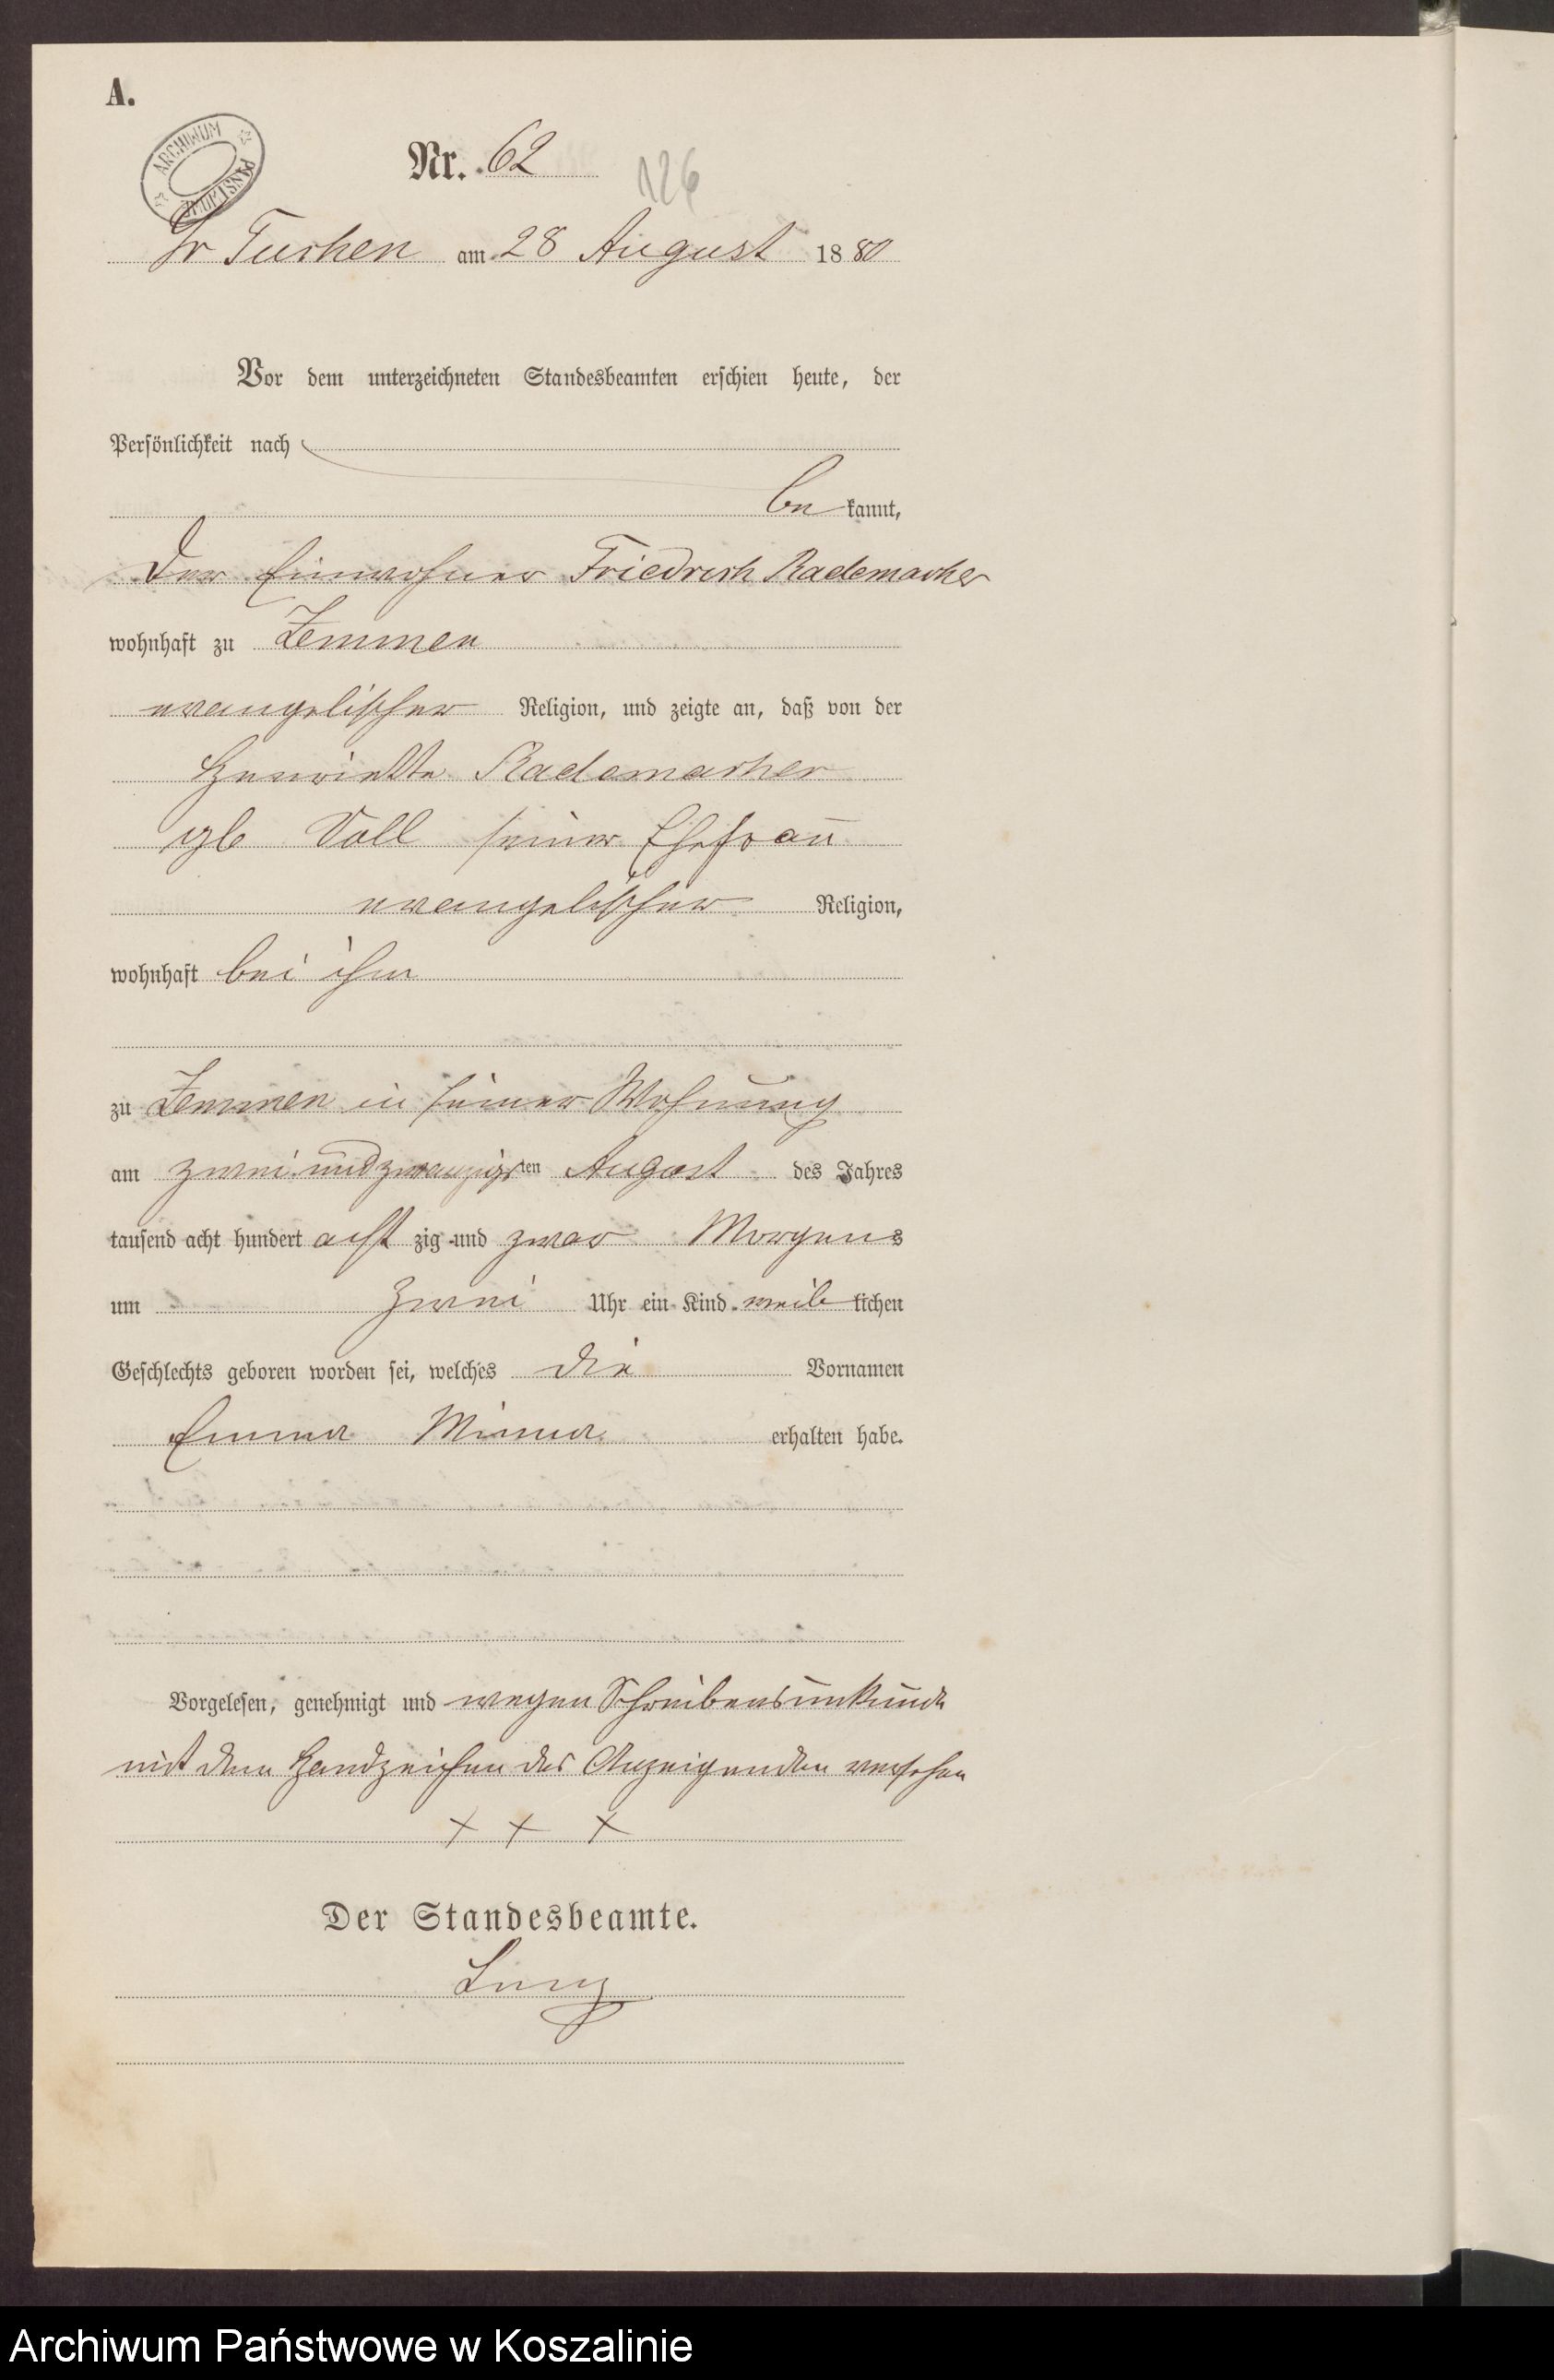 A.
ARCHIWUM PAŃSTWOWE
Nr. 62
126
Gr Tuchen am 28 August 1880
Vor dem unterzeichneten Standesbeamten erschien heute, der
Persönlichkeit nach
be kannt,
der Einwohner Friedrich Rademacher
wohnhaft zu Zemmen
evangelischer Religion, und zeigte an, daß von der
Henriette Rademacher
gb Voll seiner Ehefrau
evangelischer Religion,
wohnhaft bei ihm
zu Zemmen in seiner Wohnung
am zwei und zwanzigsten August des Jahres
tausend acht hundert acht zig und zwar Morgens
um zwei Uhr ein Kind weib lichen
Geschlechts geboren worden sei, welches die Vornamen
Emma Minna erhalten habe.
Vorgelesen, genehmigt und wegen Schreibensunkunde
mit dem Handzeichen des Anzeigenden versehen
+ + +
Der Standesbeamte.
Archiwum Państwowe w Koszalinie